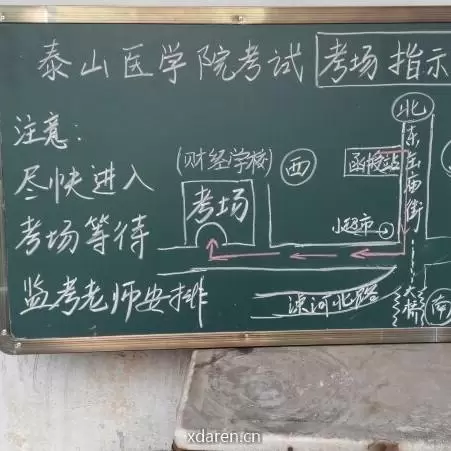 泰山医学院考试 考场指示
注意:
尽快进入
考场等待
监考老师安排
(财经学校)
考场
西
北
东岳庙街
函授站
小超市
涑河北路
大桥
南
xdaren.cn